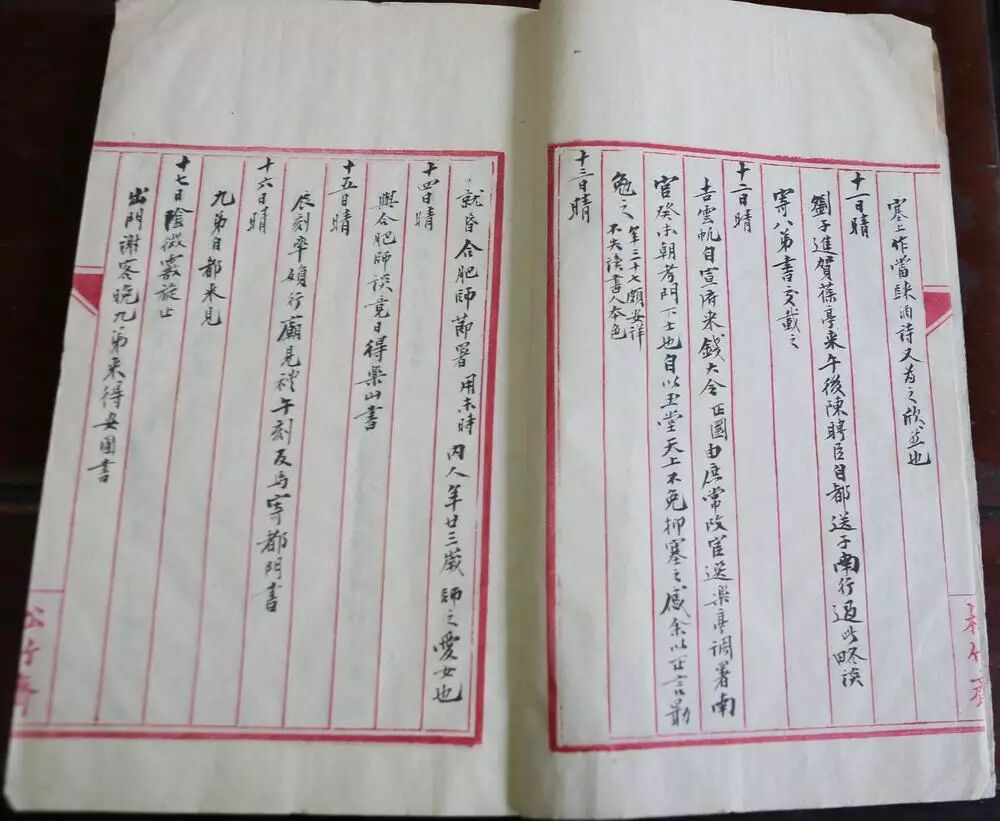 塞上作當歸酒詩又為之欣然也
十一日晴
劉子進賀葆亭來午後陳聘臣自都送子南行過此略談
寄八弟書交載之
十二日晴
吉雲帆自宣府來錢大令正圜由庶常改官選樂亭調署南
宮癸未朝考門下士也自以玉堂天上不免抑塞之感余以正言勗
勉之年三十七頗安詳
不失讀書人本色
十三日晴
就昏合肥師節署用未時內人年廿三歲師之愛女也
十四日晴
與合肥師談竟日得樂山書
十五日晴
辰刻率嬪行廟見禮午刻反馬寄都門書
十六日晴
九弟自都來見
十七日陰微霰旋止
出門謝客晚九弟來得安圃書
松竹齋